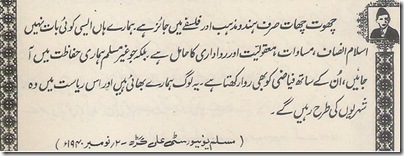 چھوت چھات صرف ہندو مذہب اور فلسفے میں جائز ہے ہمارے ہاں ایسی کوئی بات نہیں
اسلام انصاف، مساوات، معقولیت اور رواداری کا حامل ہے بلکہ جو غیر مسلم ہماری حفاظت میں آ
جائیں، اُن کے ساتھ فیاضی کو بھی روا رکھتا ہے۔ یہ لوگ ہمارے بھائی ہیں اور اس ریاست میں وہ
شہریوں کی طرح رہیں گے۔
(مسلم یونیورسٹی علی گڑھ - ۲ نومبر ۱۹۴۰ء)